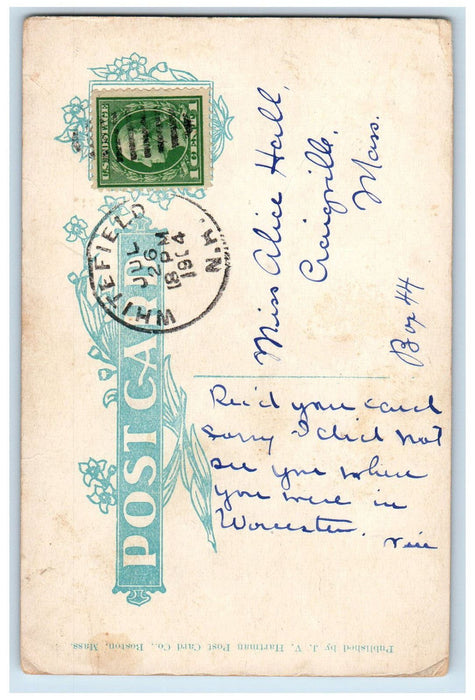 U.S. POSTAGE
1 CENT 1
WHITEFIELD
N.H.
JUL
26
PM
POST CARD
Miss Alice Hall,
Craigville,
Mass.
Box 44
Rec'd your card
sorry I did not
see you when
you were in
Worcester.
Published by J. V. Hartman Post Card Co., Boston, Mass.